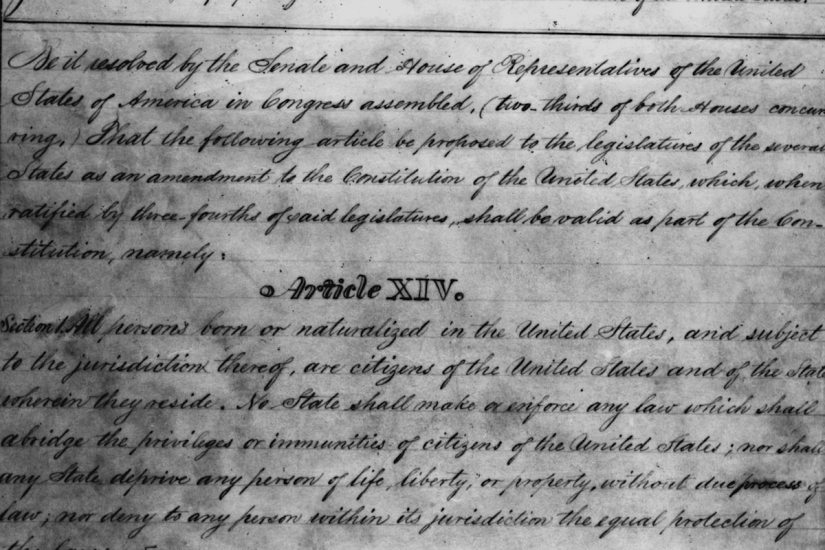 of the United States.
Be it resolved by the Senate and House of Representatives of the United
States of America in Congress assembled, (two-thirds of both Houses concur
ring,) That the following article be proposed to the legislatures of the several
States as an amendment to the Constitution of the United States, which, when
ratified by three-fourths of said legislatures, shall be valid as part of the Con-
stitution, namely:
Article XIV.
Section 1. All persons born or naturalized in the United States, and subject
to the jurisdiction thereof, are citizens of the United States and of the State
wherein they reside. No State shall make or enforce any law which shall
abridge the privileges or immunities of citizens of the United States; nor shall
any State deprive any person of life, liberty, or property, without due process of
law; nor deny to any person within its jurisdiction the equal protection of